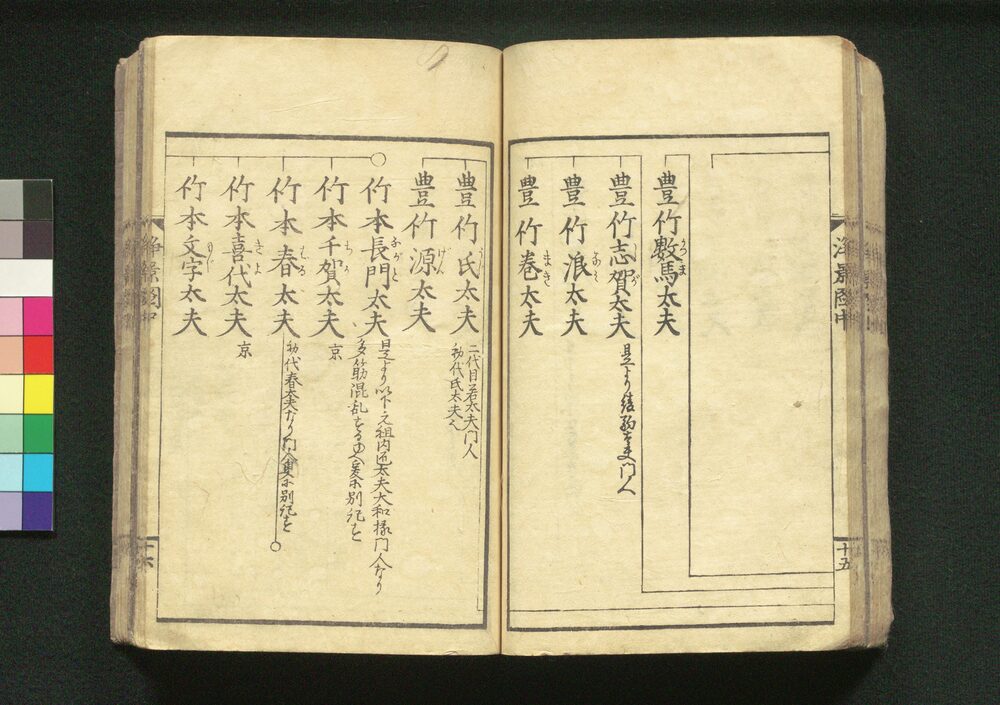 豊竹數馬太夫
豊竹志賀太夫
是より
門人
豊竹浪太夫
豊竹巻太夫
まき
十五
豊竹氏太夫
二代目若太夫門人
初代氏太夫
豊竹源太夫
げん
竹本長門太夫
ながと
是より以下元祖内匠太夫大和掾門人なり
多筋混乱
別紀を
竹本千賀太夫
ちか
京
竹本春太夫
はる
初代春太夫なり門人
別紀を
竹本喜代太夫
きよ
京
竹本文字太夫
もじ
十六